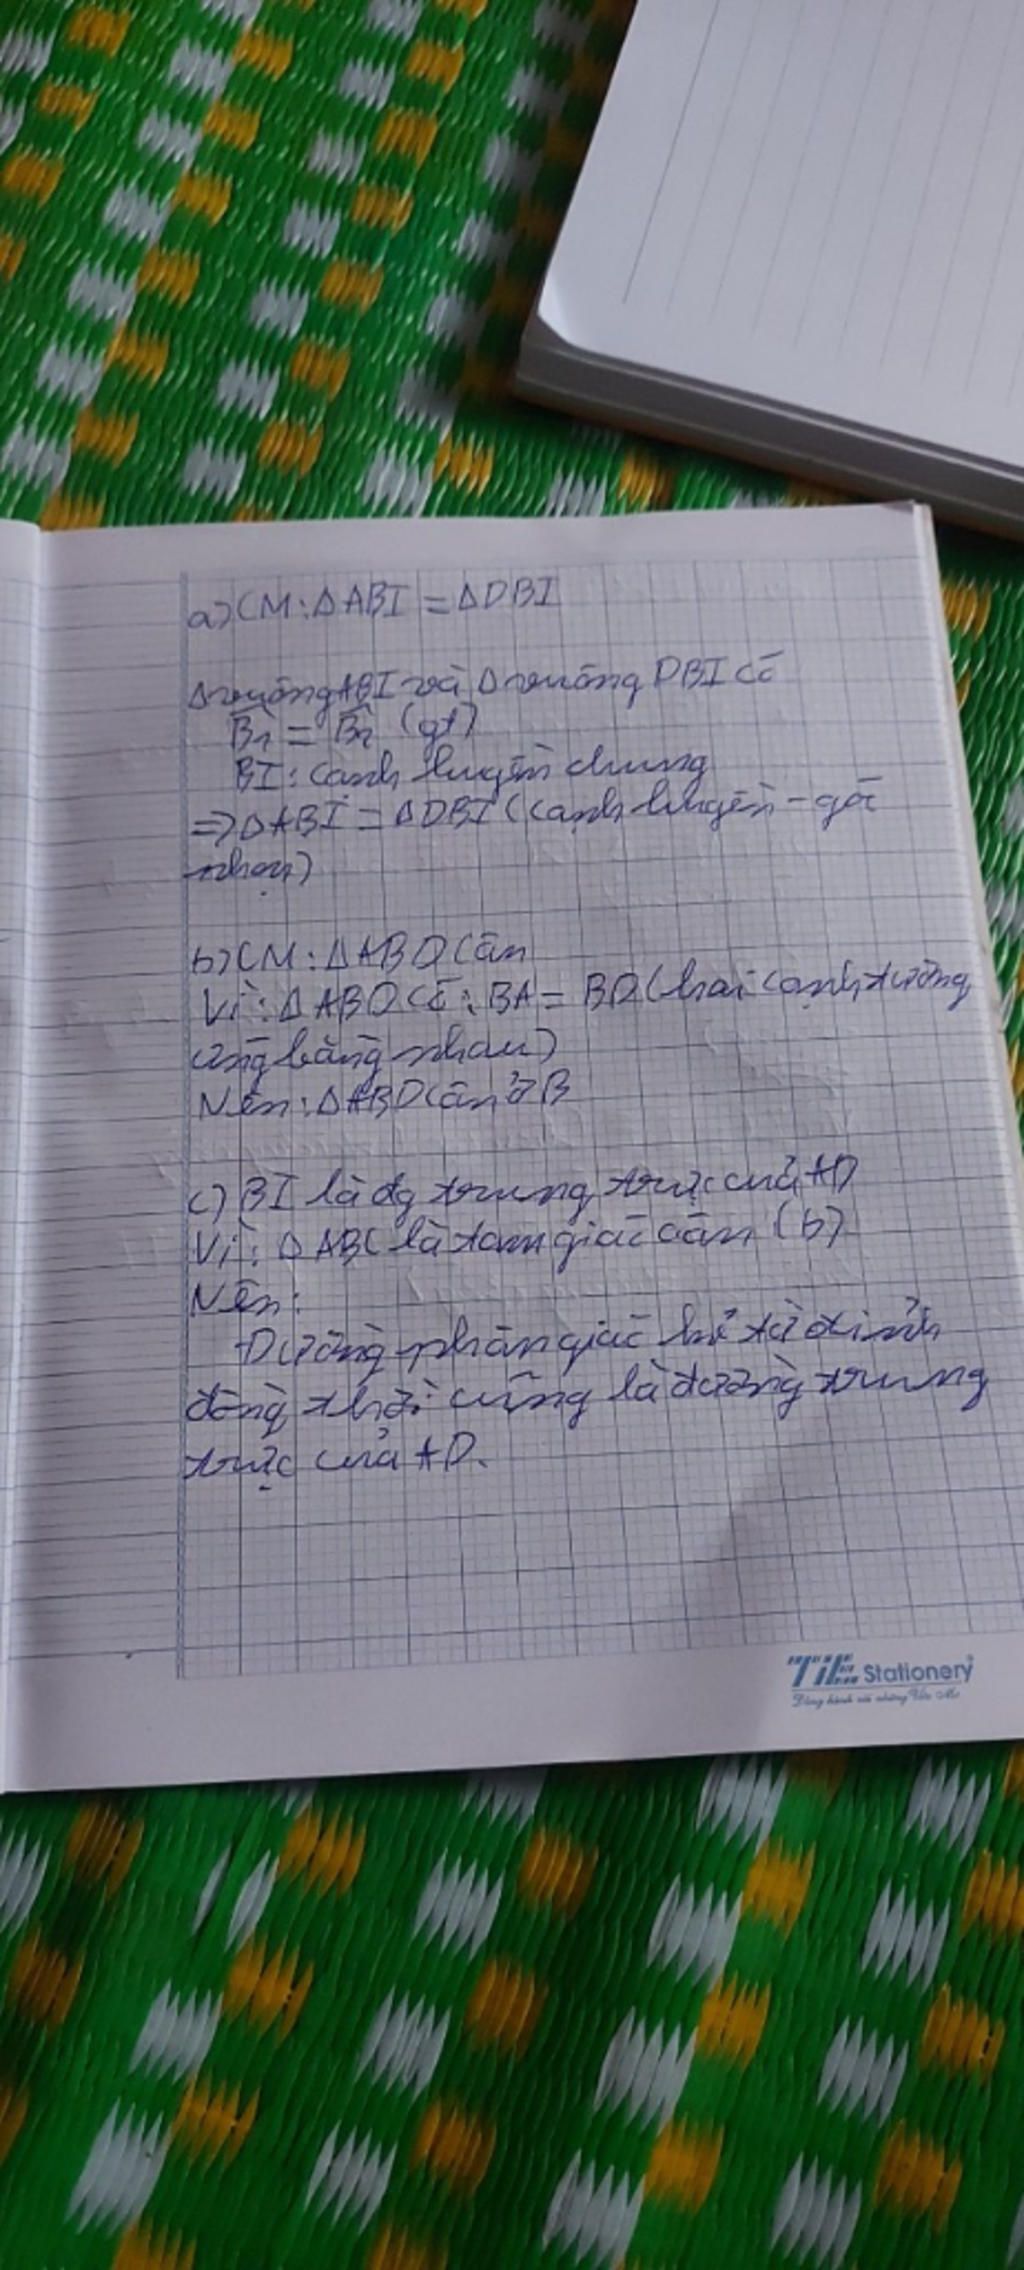 a) CM: ΔABI = ΔDBI
Δ vuông ABI và Δ vuông DBI có
B̂₁ = B̂₂ (gt)
BI: cạnh huyền chung
=> ΔABI = ΔDBI (cạnh huyền - góc
nhọn)
b) CM: ΔABD cân
Vì: ΔABD có: BA = BD (hai cạnh tương
ứng bằng nhau)
Nên: ΔABD cân ở B
c) BI là đg trung trực của AD
Vì: ΔABC là tam giác cân (b)
Nên:
Đường phân giác kẻ từ đỉnh
đồng thời cũng là đường trung
trực của AD.
TiE Stationery